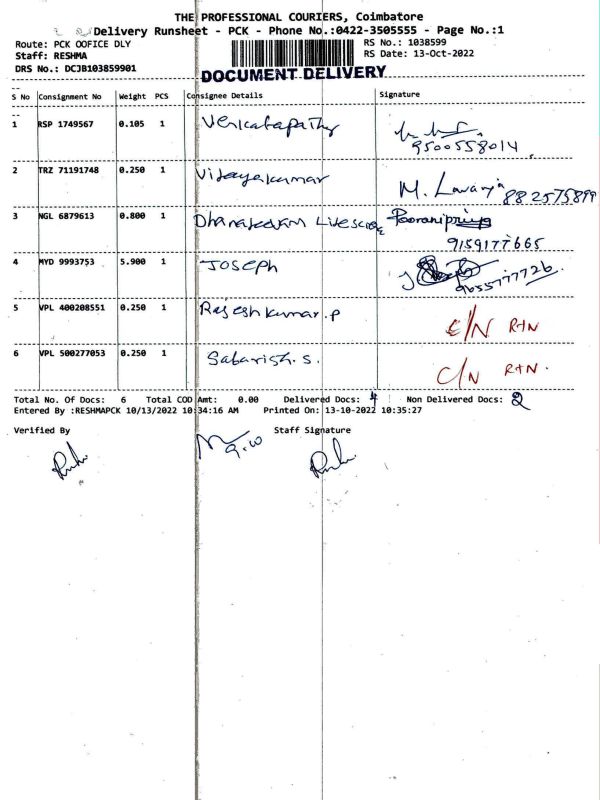 THE PROFESSIONAL COURIERS, Coimbatore
Delivery Runsheet - PCK - Phone No.:0422-3505555 - Page No.:1
Route: PCK OOFICE DLY RS No.: 1038599
Staff: RESHMA RS Date: 13-Oct-2022
DRS No.: DCJB103859901
DOCUMENT DELIVERY
S No Consignment No Weight PCS Consignee Details Signature
1 RSP 1749567 0.105 1 Venkatapathy
9500558014
2 TRZ 71191748 0.250 1 Vijayakumar M. Lavanya 882575899
3 NGL 6879613 0.800 1 Dhanajeevam Livescience Pooranipriya
9159177665
4 MYD 9993753 5.900 1 Joseph
9655777726
5 VPL 400208551 0.250 1 Rajeshkumar.P C/N RTN
6 VPL 500277053 0.250 1 Sabarish.S. C/N RTN.
Total No. Of Docs: 6 Total COD Amt: 0.00 Delivered Docs: 4 Non Delivered Docs: 2
Entered By :RESHMAPCK 10/13/2022 10:34:16 AM Printed On: 13-10-2022 10:35:27
Verified By Staff Signature